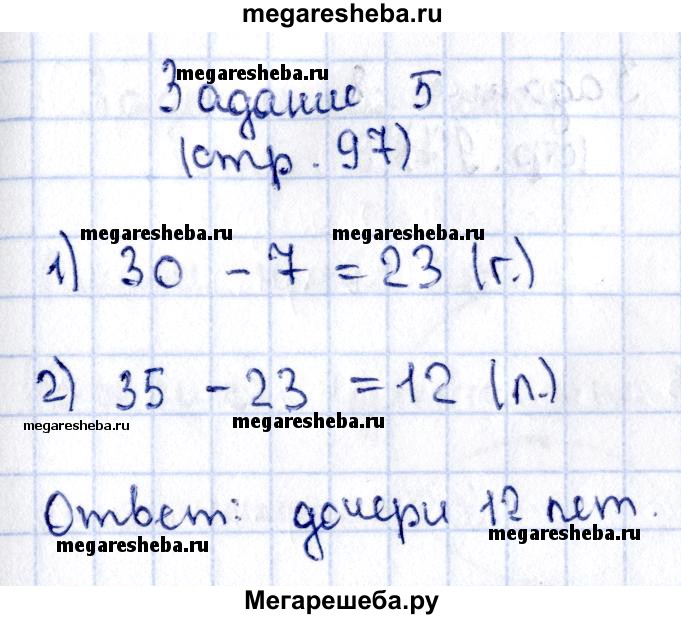 megaresheba.ru
megaresheba.ru
Задание 5
(стр. 97)
megaresheba.ru megaresheba.ru
1) 30 - 7 = 23 (г.)
2) 35 - 23 = 12 (л.)
megaresheba.ru megaresheba.ru
Ответ: дочери 12 лет.
megaresheba.ru megaresheba.ru
Мегарешеба.ру